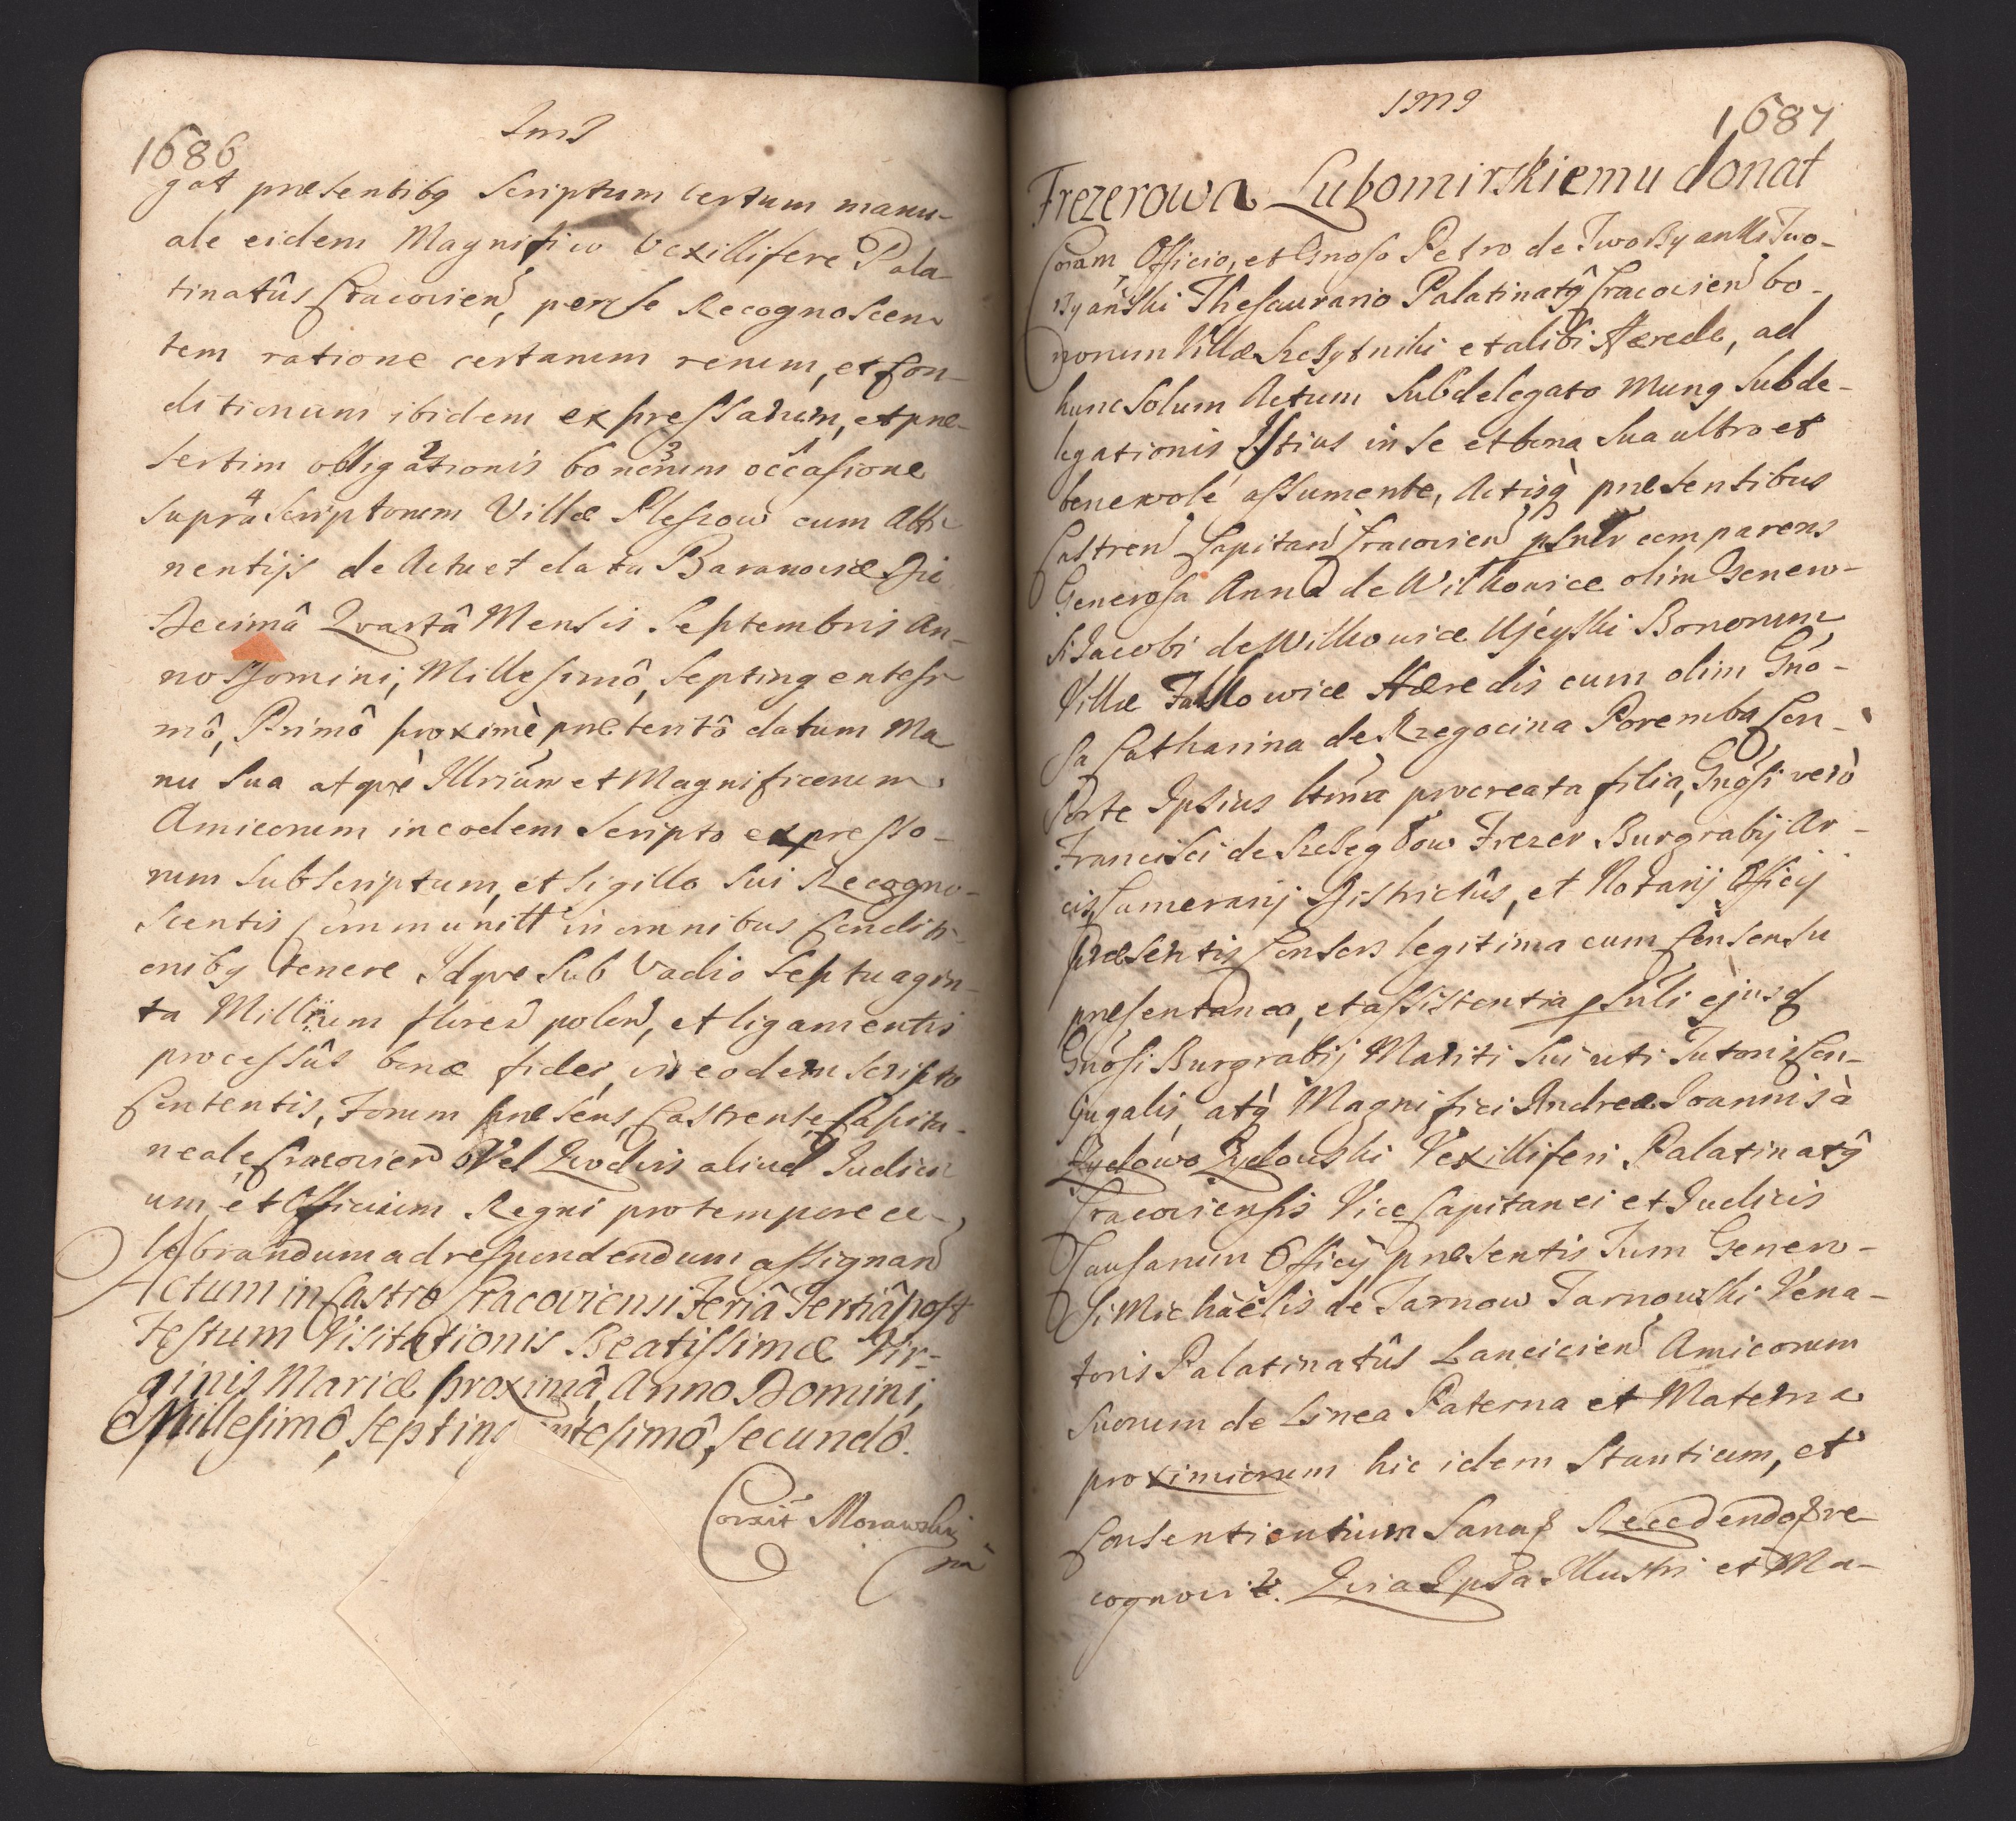 1686
gat præsentibg Scriptum Certum manu-
ale eidem Magnifico Vexillifero Pala-
tinatûs Cracovien, per se Recognoscen-
tem ratione certarum rerum, et Con-
ditionum ibidem expressarum, et præ-
sertim obligationis bonorum occasione
supra scriptorum Villæ Pleszow cum Atti-
nentijs de Actu et data Baranoviæ Die
Decimâ Qvartâ Mensis Septembris An-
no Domini, Millesimô, Septingentesi-
mô, Primô proximè præteritô datum Ma
nu Sua atqvè Illrium et Magnificorum
Amicorum in eodem Scripto expresso-
rum Subscriptum, et Sigillo Sui Recogno-
scentis Communitt in omnibus Conditi-
onibg tenere Idqve Sub Vadio Septuagin-
ta Millium floren polon, et ligamentis
processûs bonæ fidei, in eodem scripto
Contentis, Forum præsens, Castrense, Capita-
neale, Cracovien Vel Qvodvis aliud Judici
um, et Officium Regni pro tempore ce-
lebrandum ad respondendum assignan
Actum in Castro Cracoviensi Feriâ Tertiâ post
Festum Visitationis Beatissimæ Vir-
ginis Mariæ proximâ, Anno Domini,
Millesimô, Septingentesimô, Secundô.
Corxit Morawski
1687
Frezerowa Lubomirskiemu donat
Coram Officio, et Gnoso Petro de Iwo
Thesaurario Palatinatg Cracovien bo-
norum Villæ et alibi Hærede, ad
hunc Solum Actum Subdelegato Mung Subde-
legationis Istius in se et bona Sua ultro et
benevolè assumente, Actisq præsentibus
Castren Capitan Cracovien psnlr comparens
Generosa Anna de Wilkowice olim Genero-
si Jacobi de Wilkowice Bonorum
Villæ Hæredis cum olim Gno-
sa Catharina de Rzegocina Poremba Con-
sorte Ipsius ltima procreata filia, Gnosi verò
Francisci de Frezer Burgrabij Ar-
cis, Camerarij Districtûs, et Notarij Officij
præsentis Consors legitima cum Consensu
præsentaneo, et assistentia psnli ejusq
Gnosi Burgrabij Mariti Sui uti Tutoris Con-
jugalis, atq Magnifici Andreæ Joannis à
Żydowo Żydowski Vexilliferi Palatinatg
Cracoviensis Vice Capitanei et Judicis
Causarum Officij præsentis Tum Genero-
si Michaëlis de Tarnow Tarnowski Vena-
toris Palatinatûs Lancicien Amicorum
suorum de Linea Paterna et Materna
proximiorum hic idem Stantium, et
Consentientium Sana Recedendo re
cognovit. Qvia Ipsa Illustri et Ma-